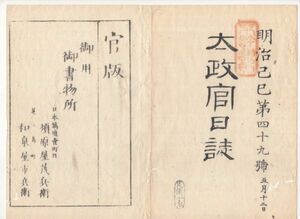 明治己巳第四十九號 五月十二日
太政官日誌
官版
御用
御書物所
須原屋茂兵衛
和泉屋市兵衛